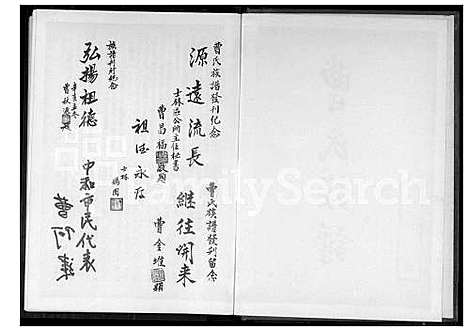 曹氏族譜發刊紀念
源遠流長
士林區公所主任秘書
曹昌福敬題
曹氏族譜發刊留念
繼往開來
曹金堆題
祖德永存
士林
族譜刊封紀念
弘揚祖德
辛亥孟冬
曹秋波題
中和市民代表
曹阿
FamilySearch